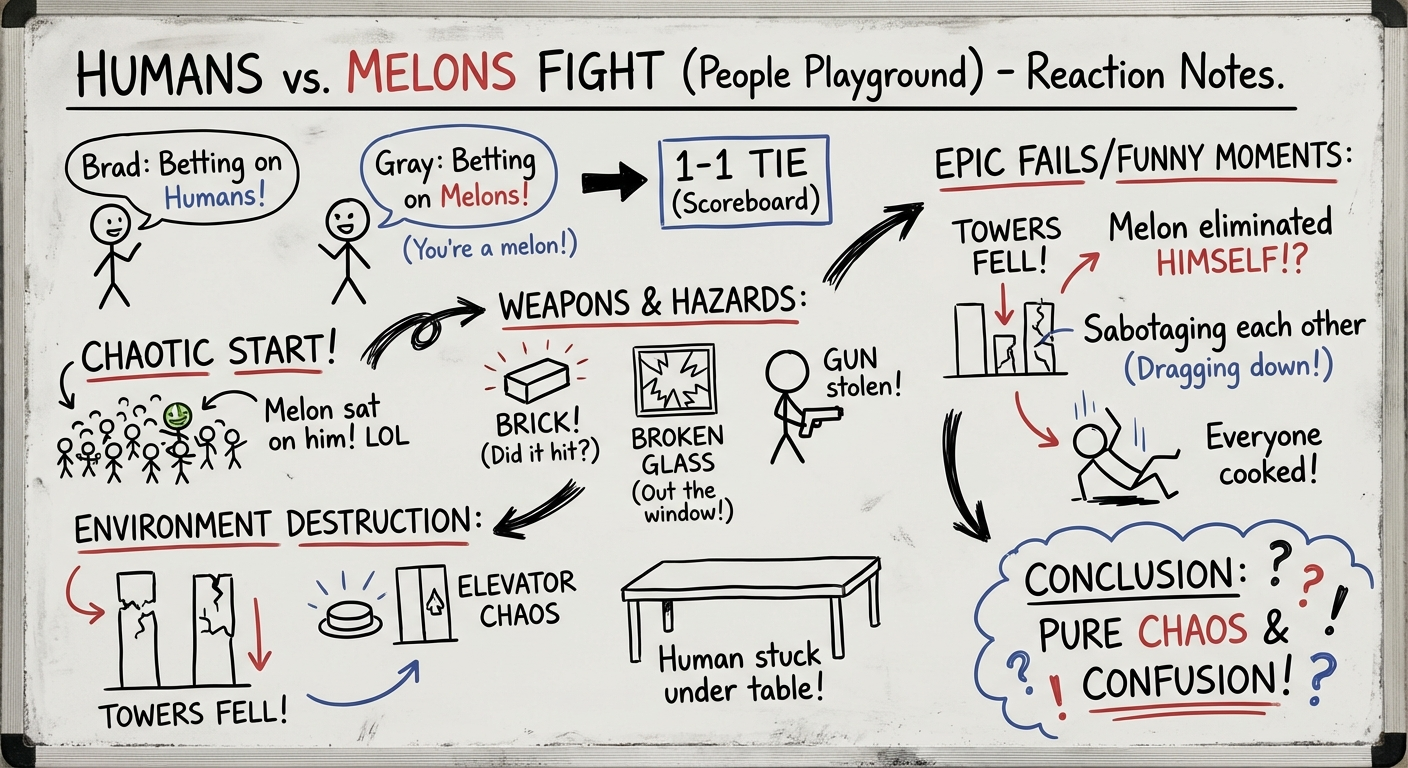 HUMANS vs. MELONS FIGHT (People Playground) – Reaction Notes.
Brad: Betting on
Humans!
Gray: Betting
on Melons!
(You're a melon!)
1-1 TIE
(Scoreboard)
CHAOTIC START!
Melon sat
on him! LOL
WEAPONS & HAZARDS:
BRICK!
(Did it hit?)
BROKEN
GLASS
(Out the
window!)
GUN
stolen!
ENVIRONMENT DESTRUCTION:
TOWERS FELL!
ELEVATOR
CHAOS
Human stuck
under table!
EPIC FAILS/FUNNY MOMENTS:
TOWERS
FELL!
Melon eliminated
HIMSELF!?
Sabotaging each other
(Dragging down!)
Everyone
cooked!
CONCLUSION: ? ? !
PURE CHAOS &
? ! CONFUSION! ?